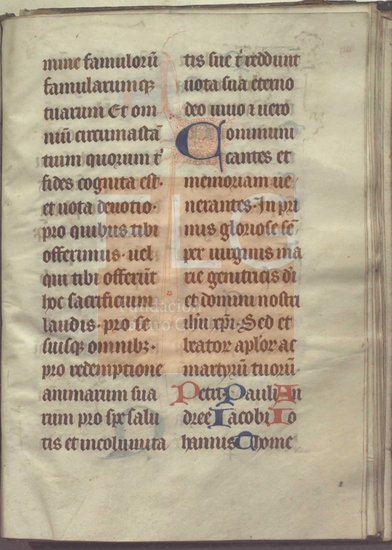 mine famulorū
famularumq;
tuarum Et om
niū circumastā
tium quorum t'
fides cognita est·
et nota deuotio·
pro quibus tibi
offerimus· uel
qui tibi offerūt
hoc sacrificium
laudis· pro se
suisq; omnibz·
pro redemptione
animarum sua
rum pro spe salu
tis et incolumita
tis sue t' reddunt
uota sua eterno
deo uiuo a uero
Communi
cantes et
memoriam ue
nerantes· In pri
mis gloriose sē
per uirginis ma
rie genitricis dī
et domini nostri
ihū xpī· Sed et
beator aplor ac
martyrū tuorū·
Petri Pauli An
dree Iacobi Io
hannis Thome